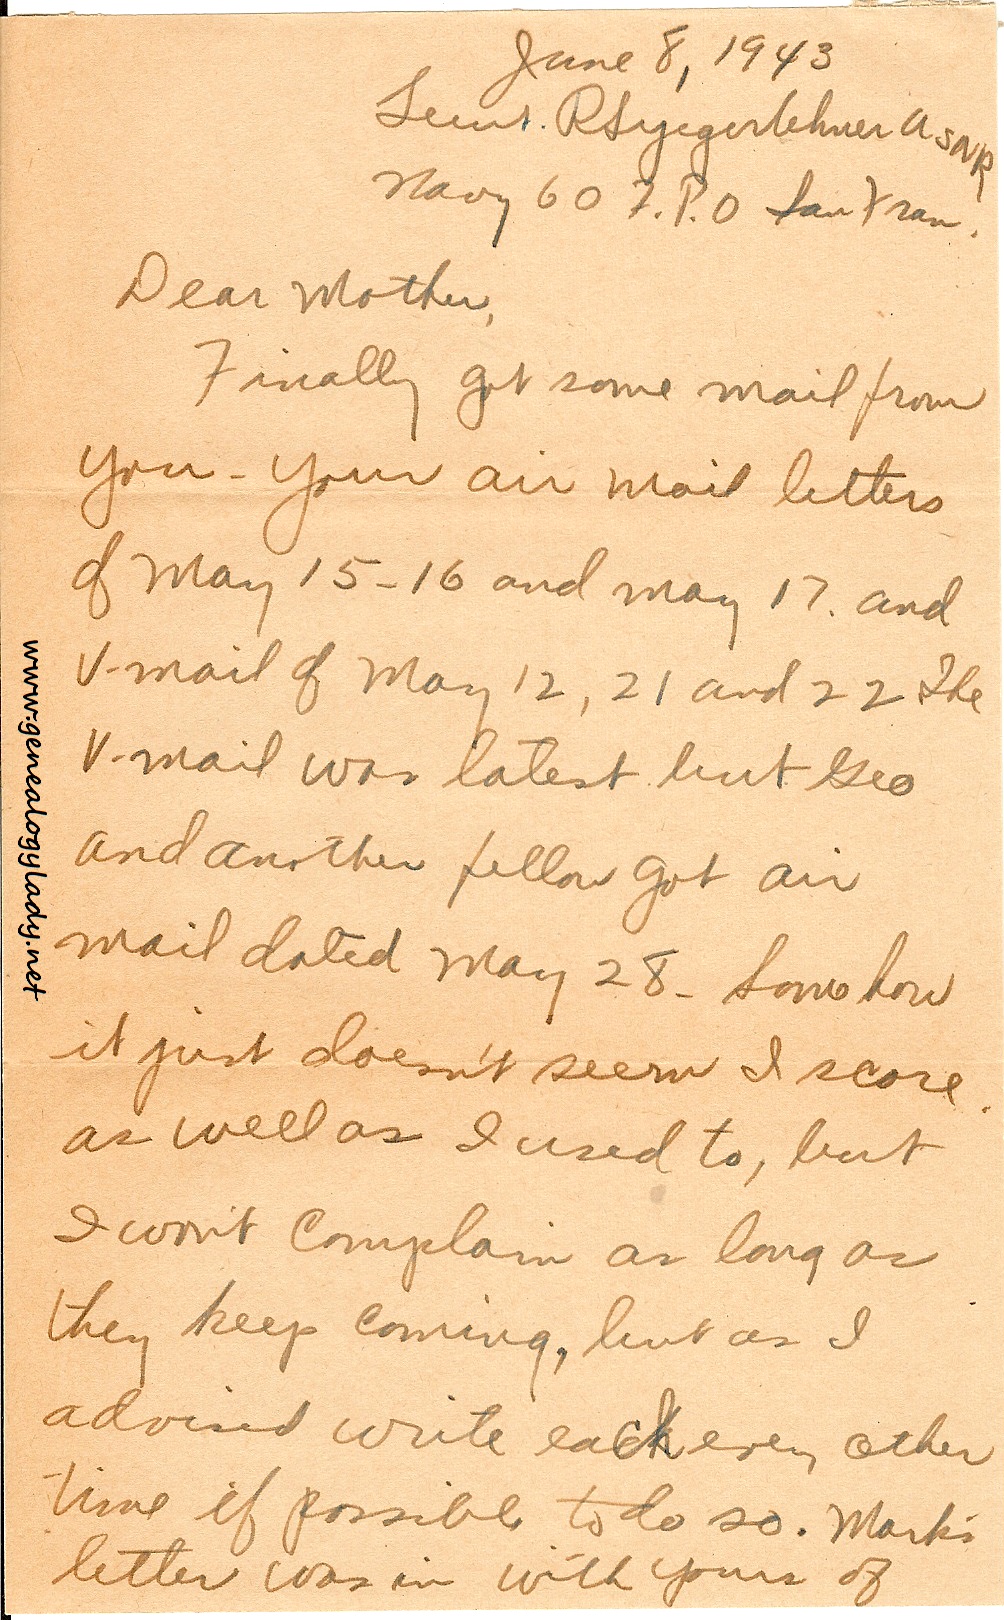 June 8, 1943
Lieut. R S Yegerlehner USNR
Navy 60 F.P.O San Fran.
Dear Mother,
Finally got some mail from
you - your air mail letters
of May 15-16 and May 17. and
V-mail of May 12, 21 and 22 The
V-mail was latest but Geo
and another fellow got air
mail dated May 28- Somehow
it just doesn't seem I score
as well as I used to, but
I won't complain as long as
they keep coming, but as I
advised write each every other
time if possible to do so. Mark's
letter was in with yours of
www.genealogylady.net